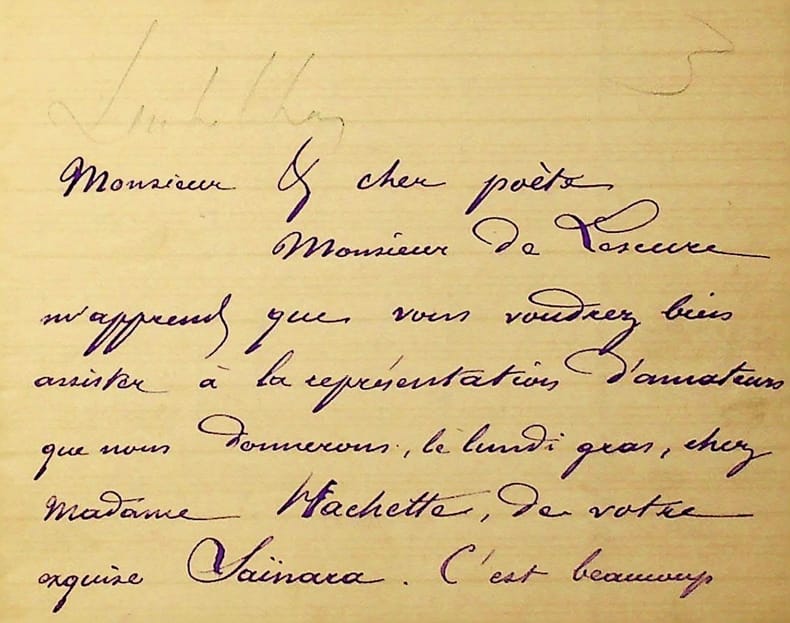 Monsieur & cher poète
Monsieur de Lescure
m'apprend que vous voudrez bien
assister à la représentation d'amateurs
que nous donnerons, le lundi gras, chez
Madame Hachette, de votre
exquise Saïnara. C'est beaucoup